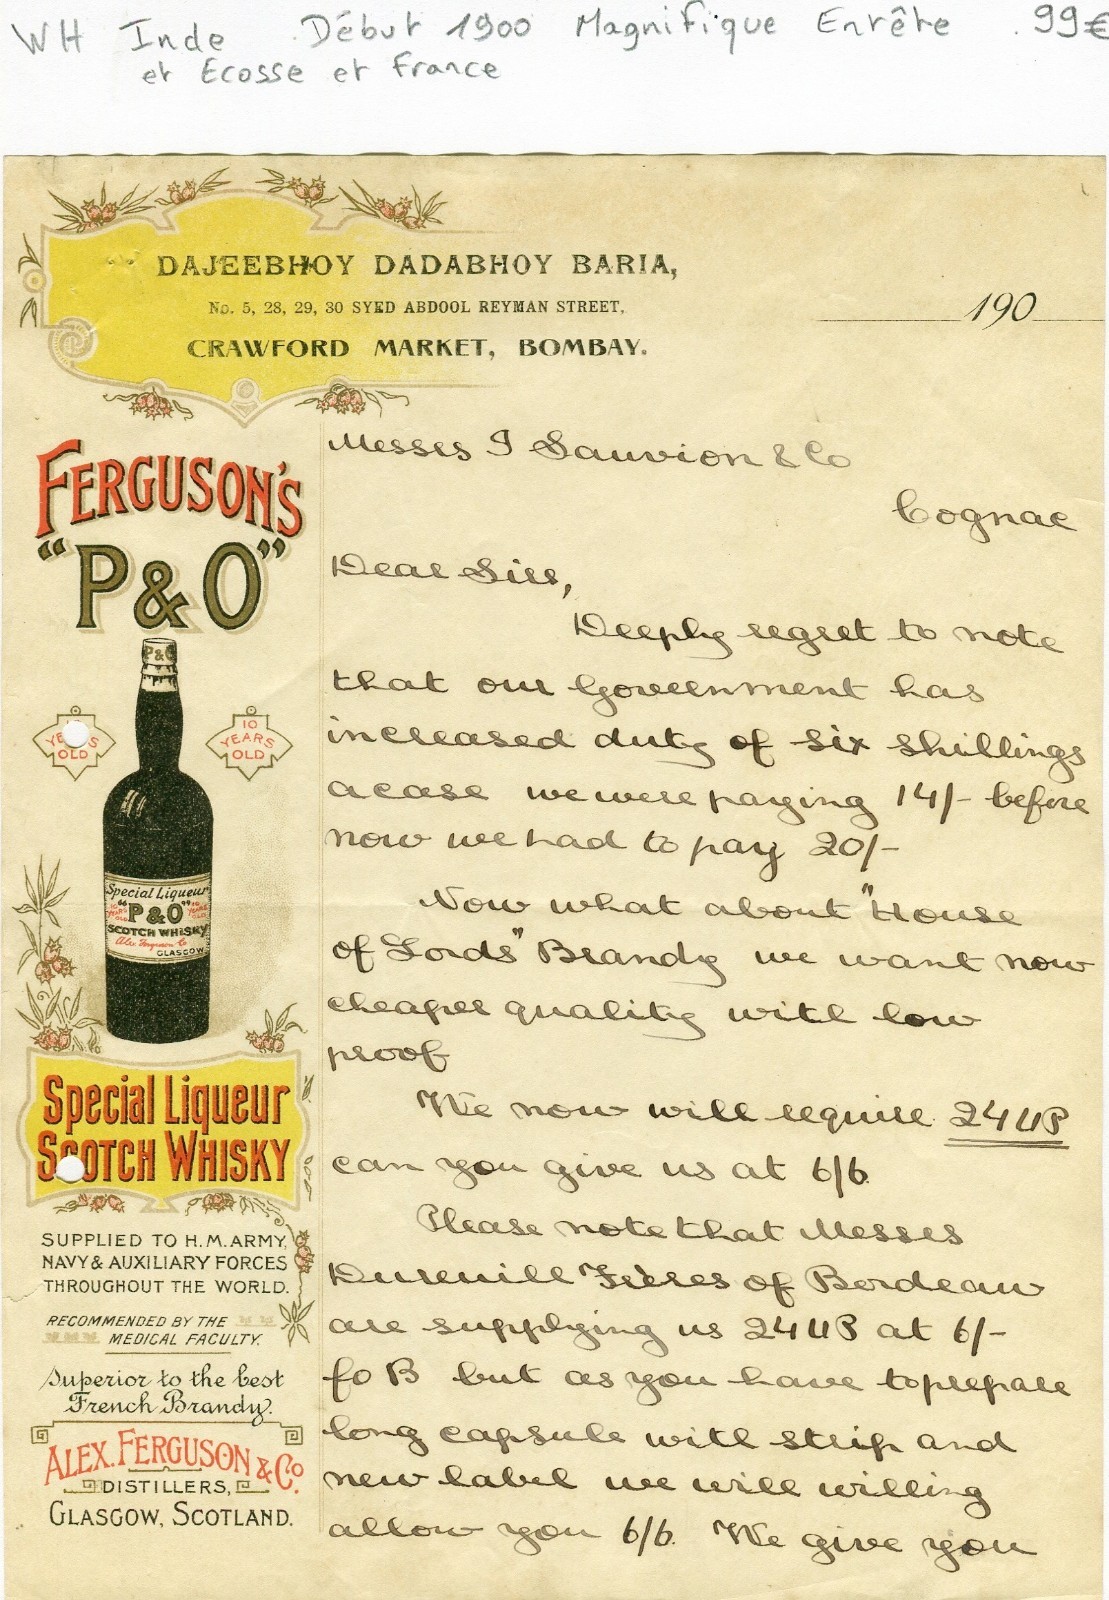 WH Inde Début 1900 Magnifique Entête 99€
et Ecosse et France
DAJEEBHOY DADABHOY BARIA,
No. 5, 28, 29, 30 SYED ABDOOL REYMAN STREET,
CRAWFORD MARKET, BOMBAY.
190
FERGUSON'S
"P & O"
P&O
YEARS
OLD
10
YEARS
OLD
Special Liqueur
10 YEARS OLD "P & O" 10 YEARS OLD
SCOTCH WHISKY
Alex. Ferguson & Co
GLASGOW
Special Liqueur
SCOTCH WHISKY
SUPPLIED TO H.M. ARMY,
NAVY & AUXILIARY FORCES
THROUGHOUT THE WORLD.
RECOMMENDED BY THE
MEDICAL FACULTY.
Superior to the best
French Brandy.
ALEX. FERGUSON & Co.
DISTILLERS,
GLASGOW, SCOTLAND.
Messrs J Sauvion & Co
Cognac
Dear Sirs,
Deeply regret to note
that our Government has
increased duty of six shillings
a case we were paying 14/- before
now we had to pay 20/-
Now what about "House
of Lords" Brandy we want now
cheaper quality with low
proof
We now will require 24 UP
can you give us at 6/6.
Please note that Messrs
Frères of Bordeaux
are supplying us 24 UP at 6/-
fo B but as you have to prepare
long capsule with strip and
new label we will willing
allow you 6/6. We give you